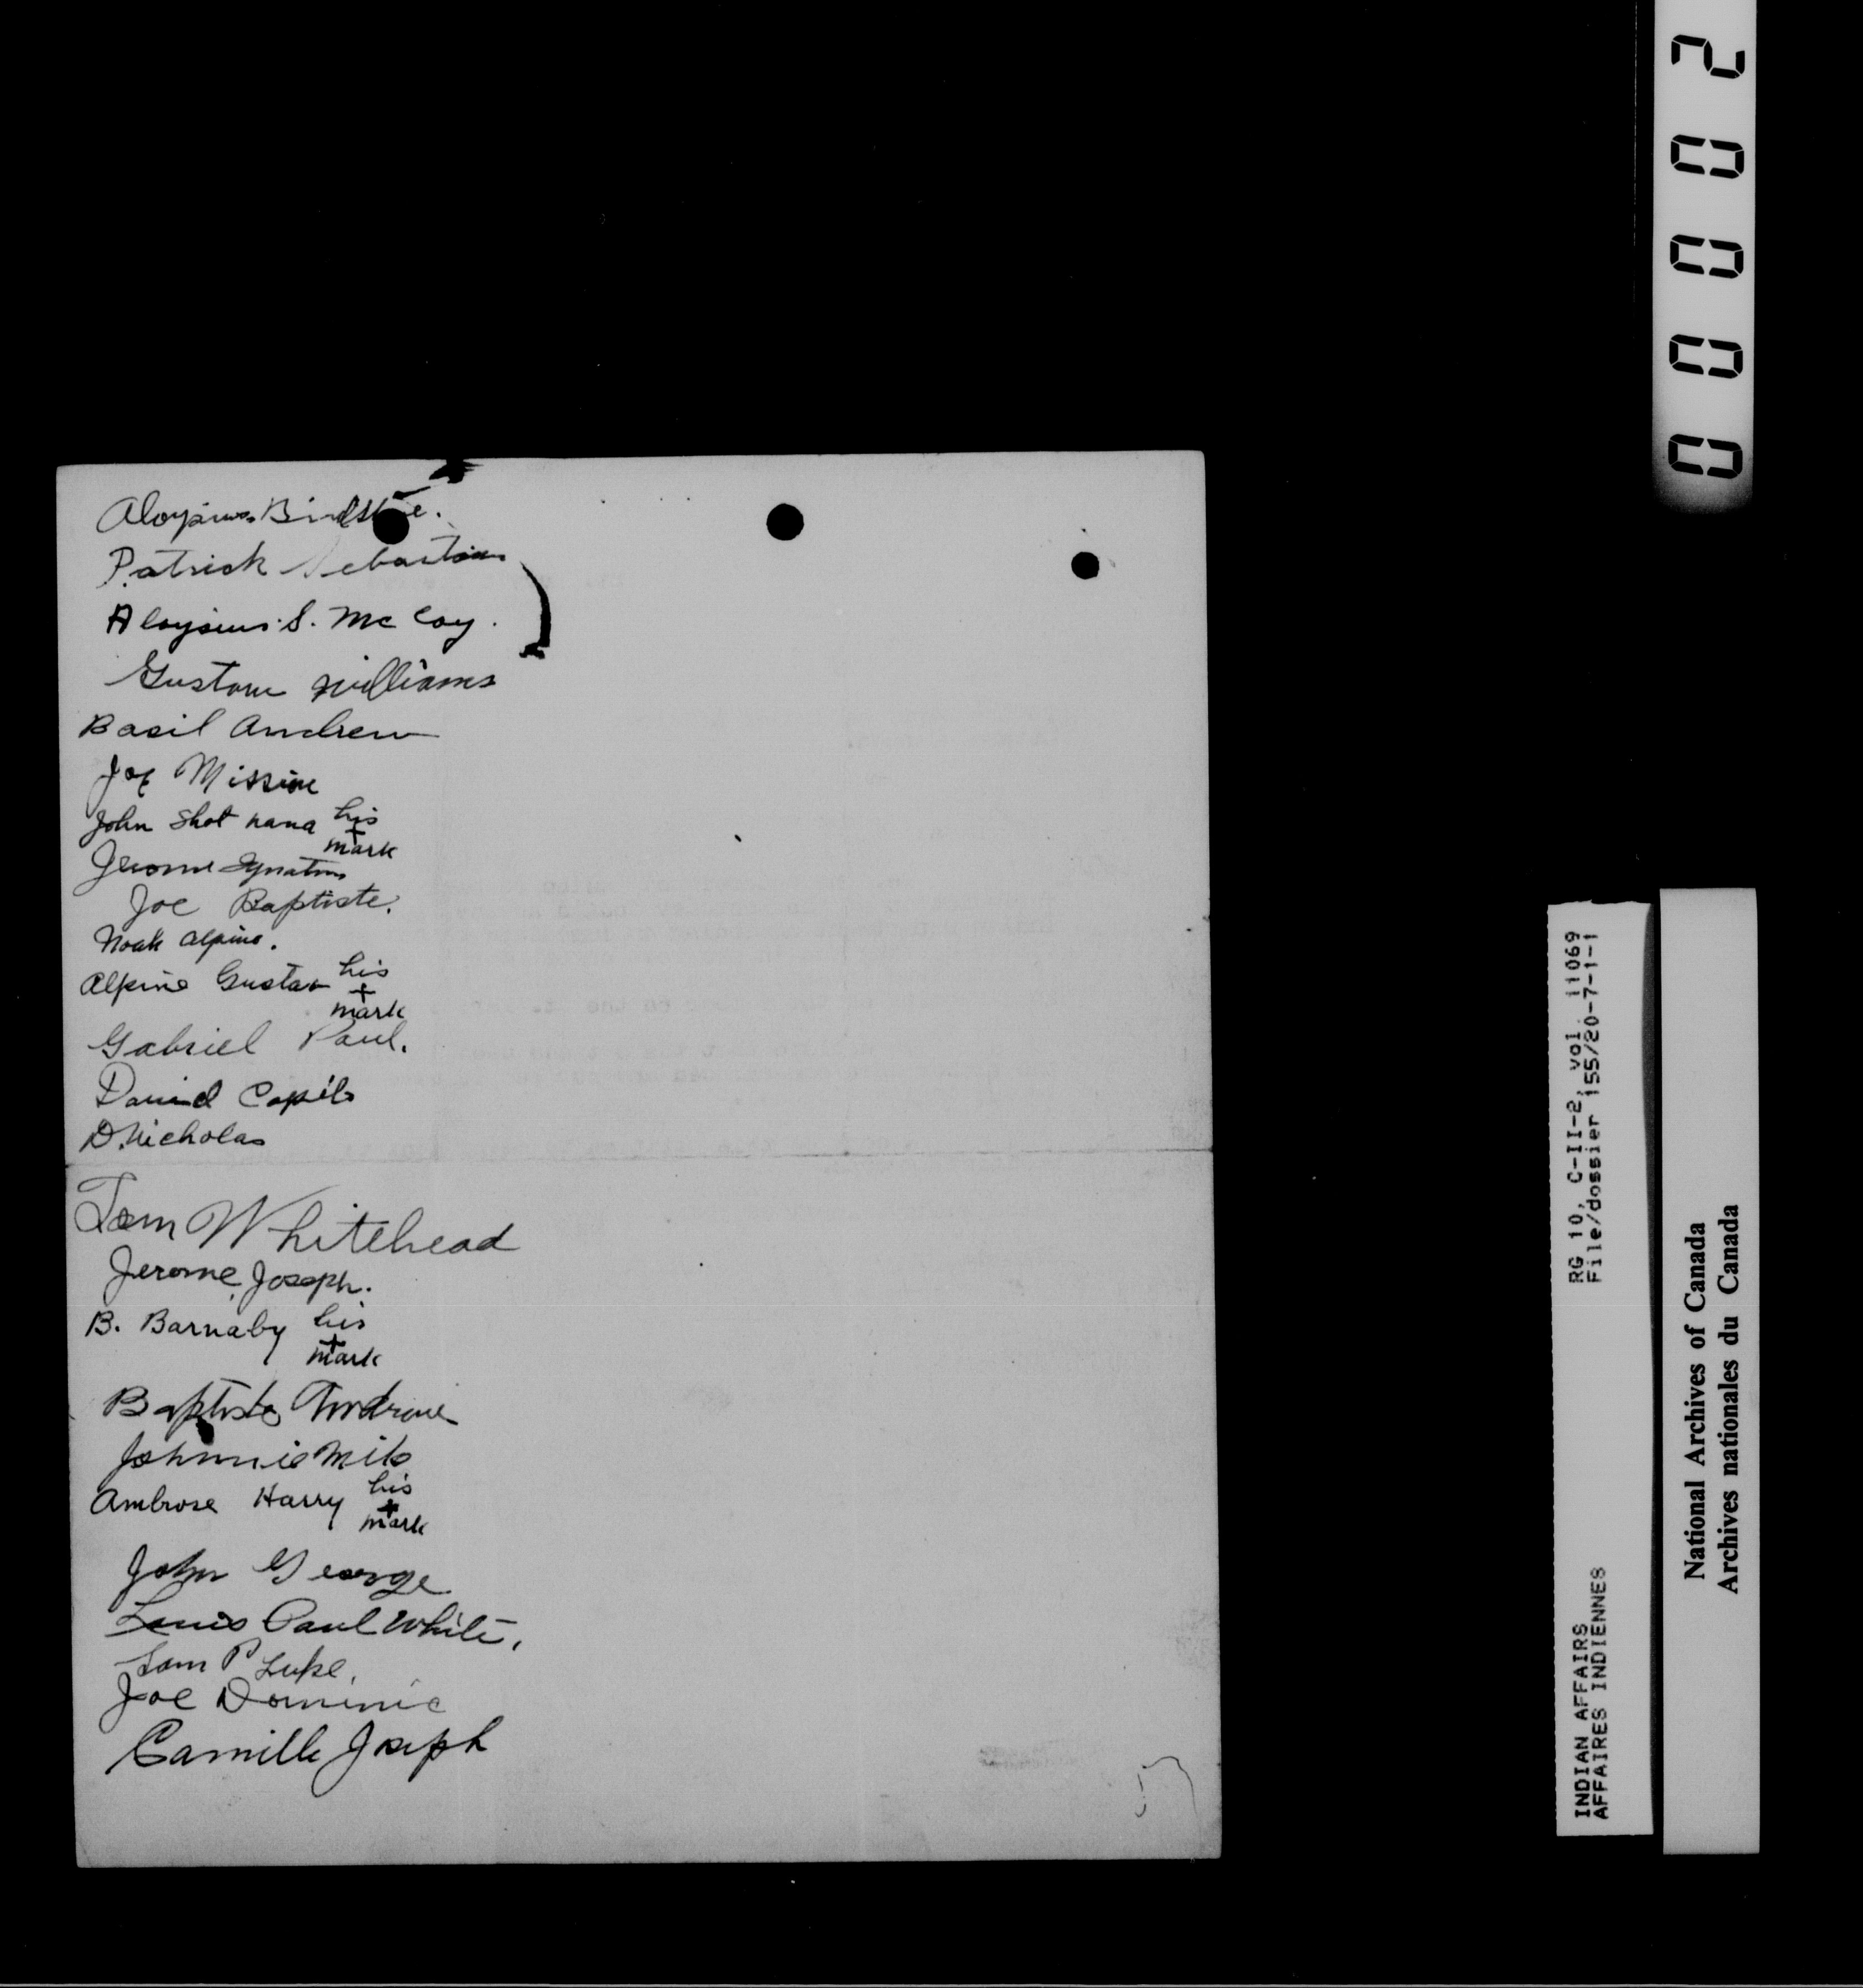 Aloysius Birdstone.
Patrick Sebastian
Aloysius. S. McCoy.
Gustave Williams
Basil Andrew
Joe Mission
John Shot nana his
+
mark
Jerome Ignatius
Joe Baptiste.
Noah Alpine.
Alpine Gustav his
+
mark
Gabriel Paul.
David Capilo
D. Nicholas
Tom Whitehead
Jerome Joseph.
B. Barnaby his
+
mark
Baptiste
Johnnie Milo
Ambrose Harry his
+
mark
John George
Louis Paul White.
Sam P Luke.
Joe Dominic
Camille Joseph
57
00002
RG 10, C-II-2, vol. 11069
File/dossier 155/20-7-1-1
INDIAN AFFAIRS
AFFAIRES INDIENNES
National Archives of Canada
Archives nationales du Canada